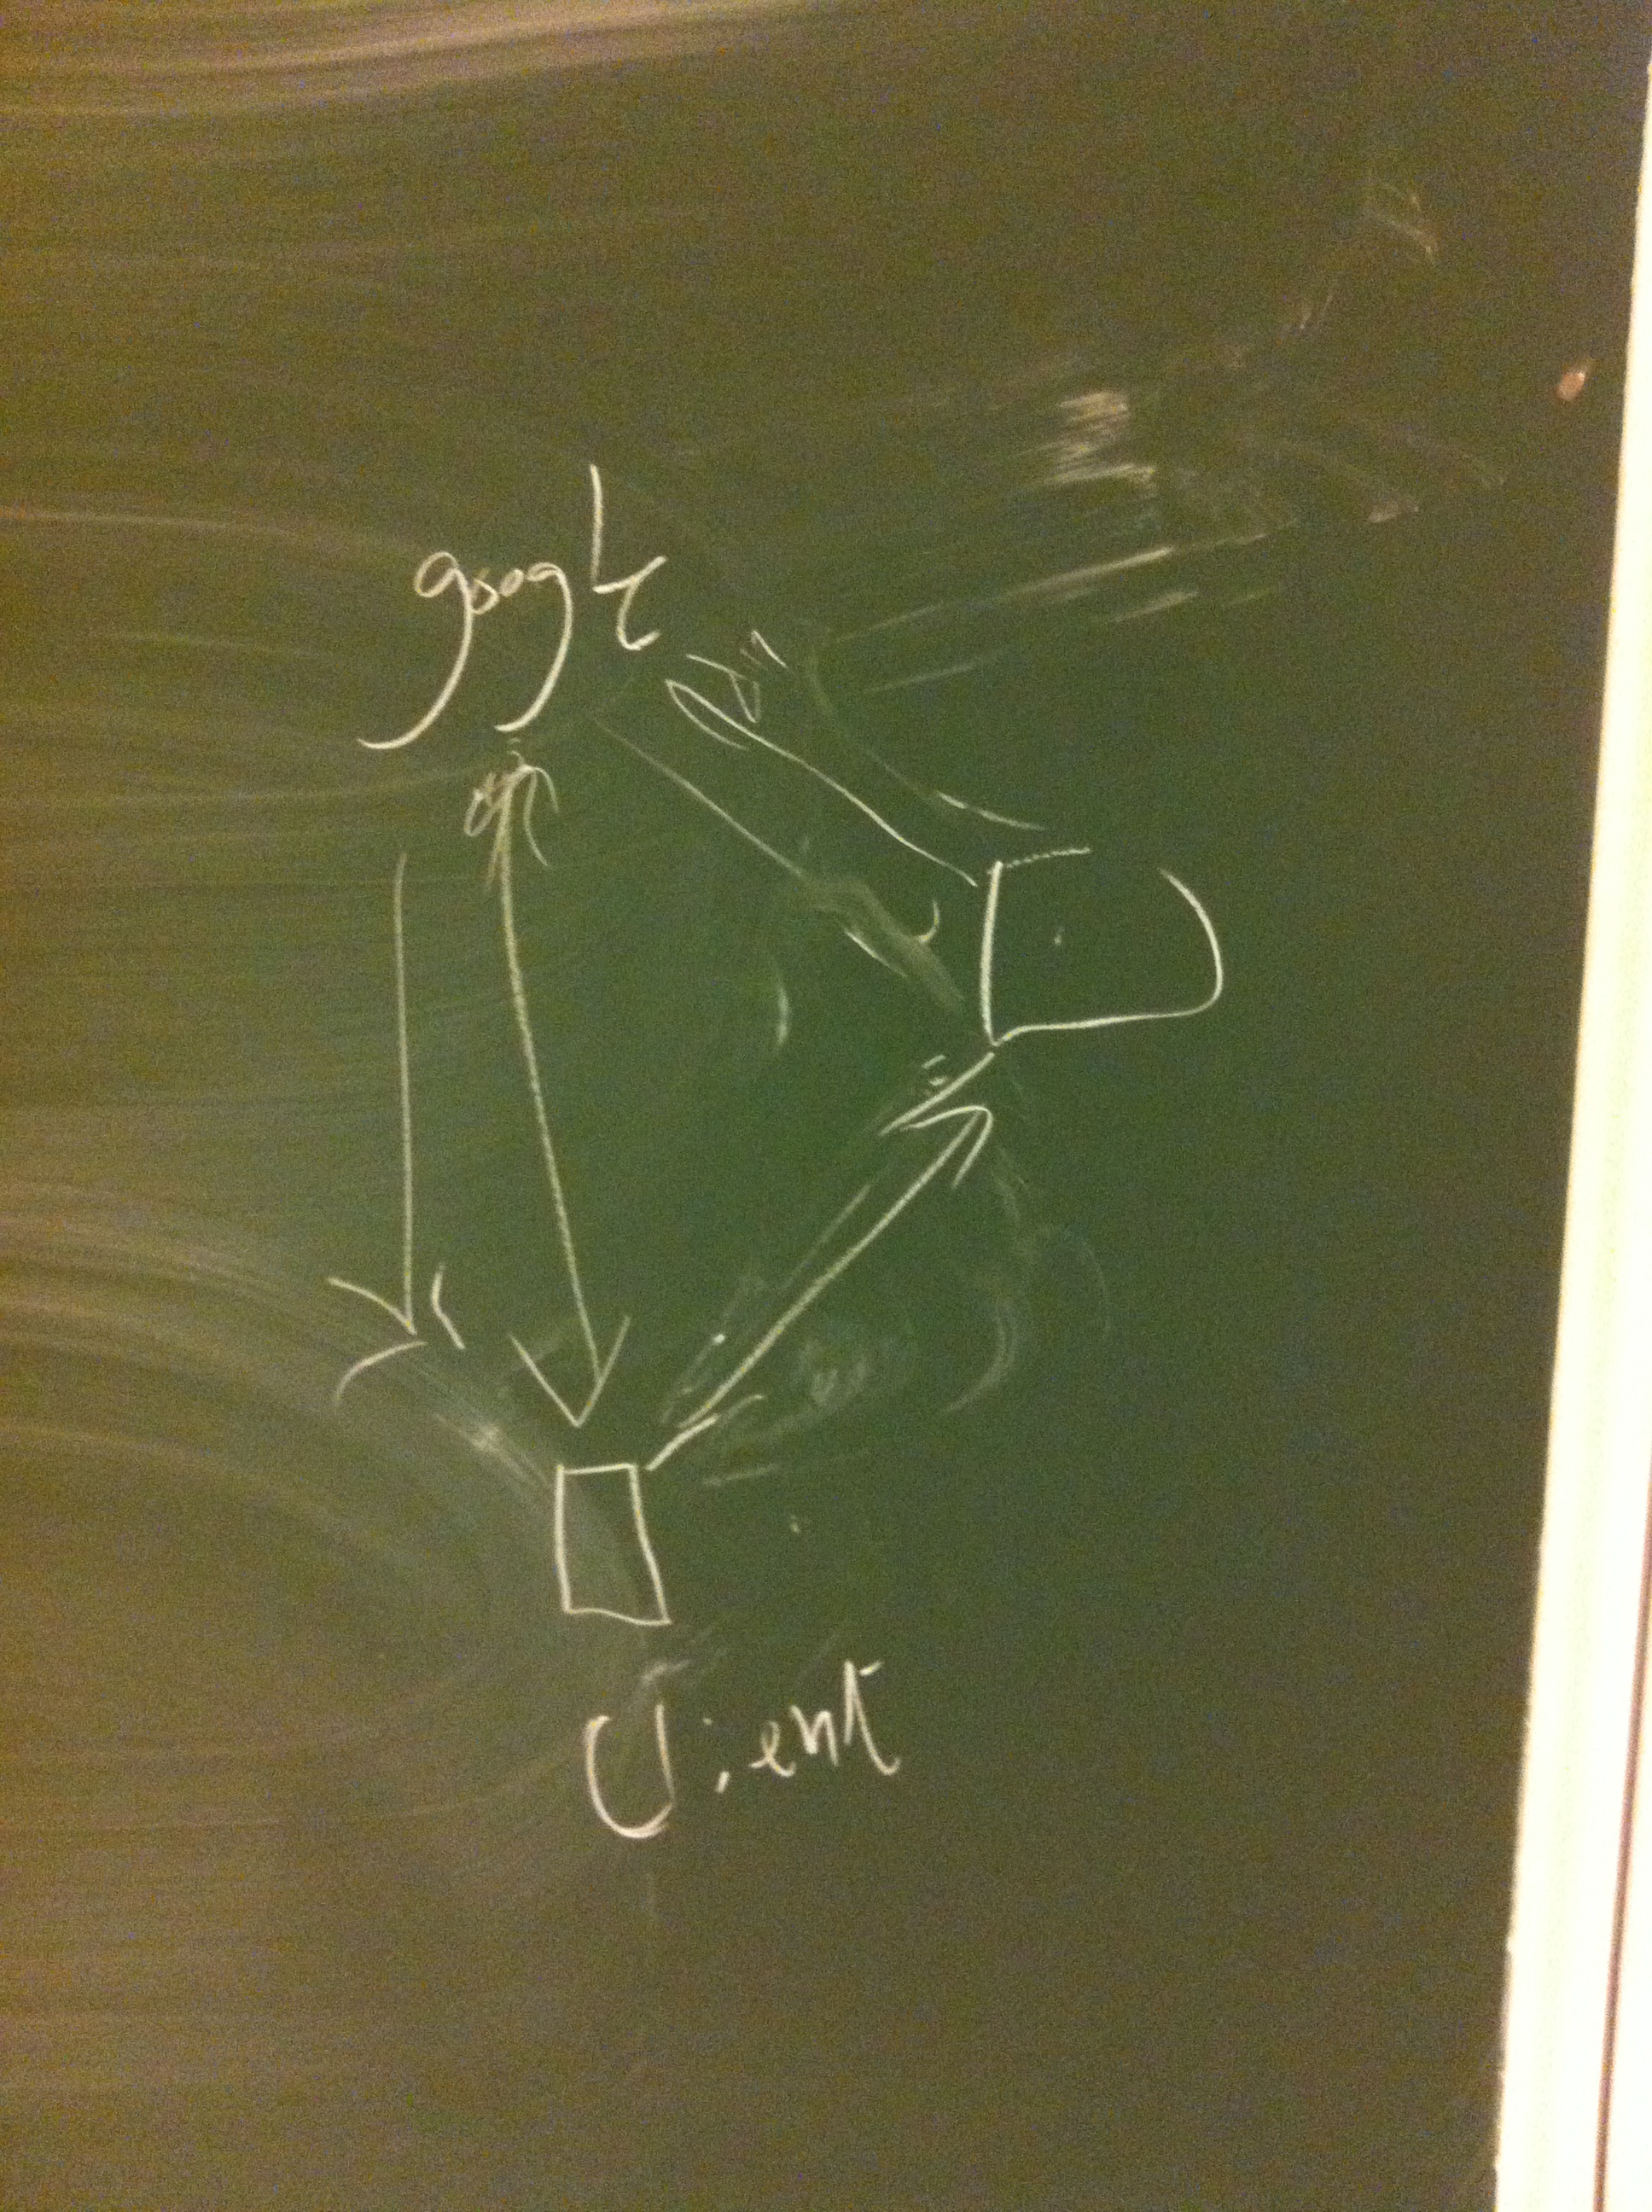 google
Client